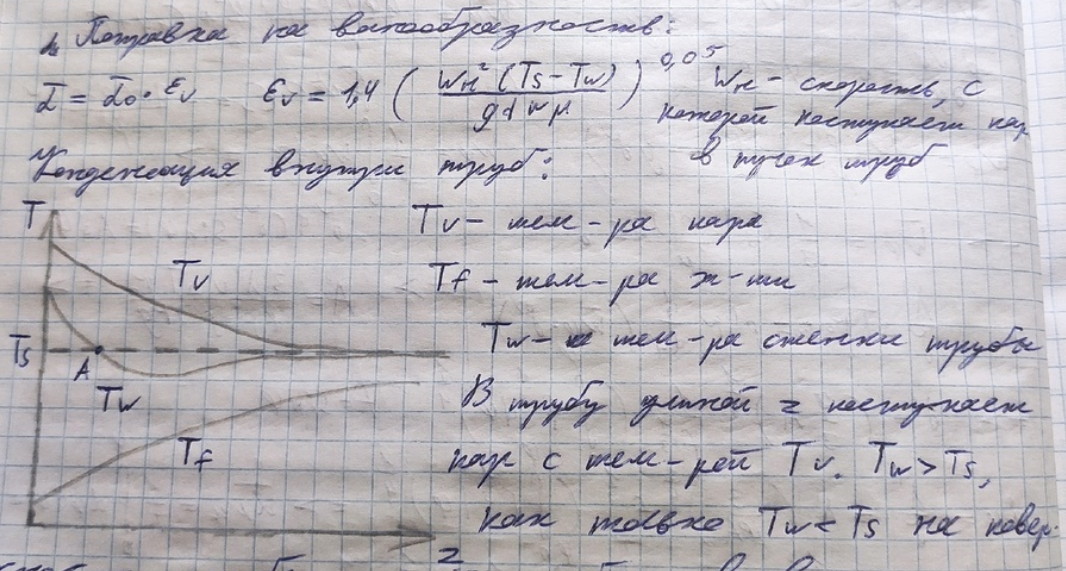 Поправка на волнообразность:
α = α₀ · εv εv = 1,4 ( Wн² (Ts – Tw) / g d ) ^0,05 Wн – скорость, с
которой поступает пар
в пучок труб
Конденсация внутри труб:
T
Tv – тем-ра пара
Tv
Tf – тем-ра ж-ти
Ts
Tw – тем-ра стенки трубы
A
Tw
В трубу длиной z поступает
Tf
пар с тем-рой Tv. Tw > Ts,
как только Tw < Ts на повер-
z